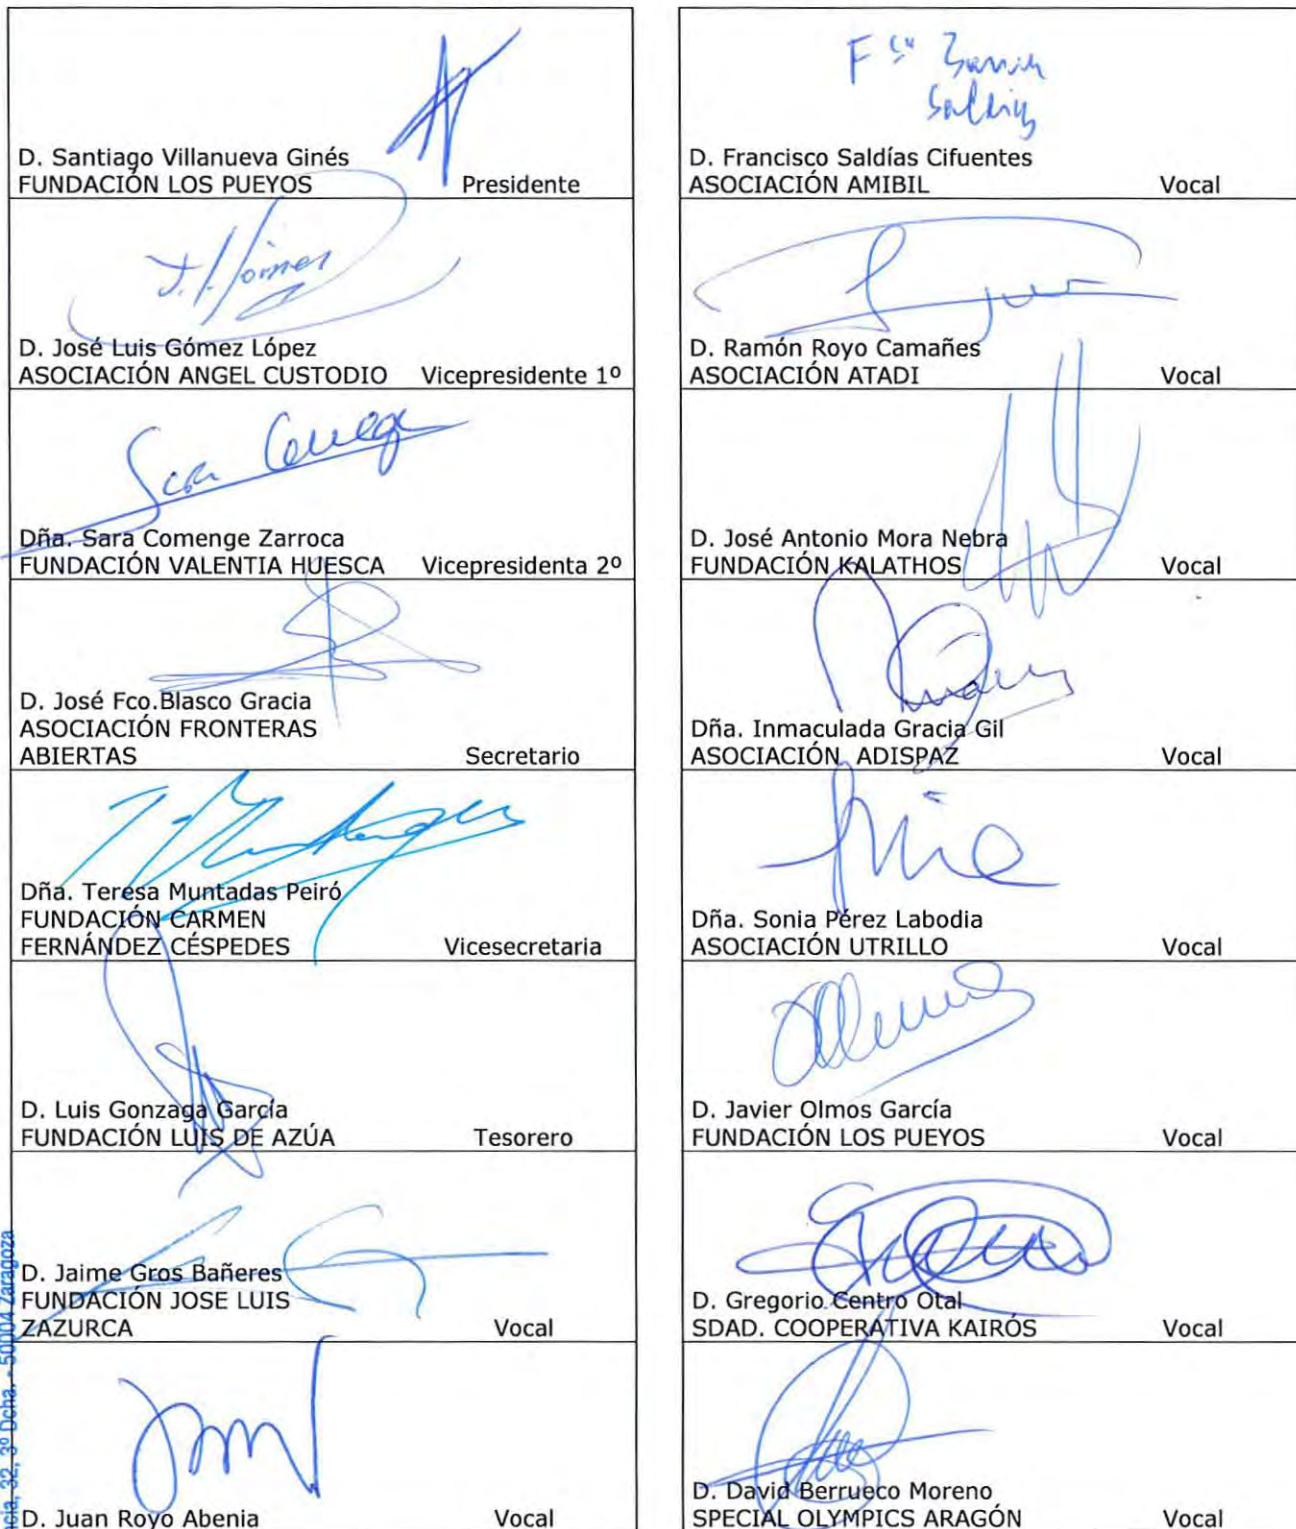 D. Santiago Villanueva Ginés
FUNDACIÓN LOS PUEYOS Presidente
D. José Luis Gómez López
ASOCIACIÓN ANGEL CUSTODIO Vicepresidente 1º
Dña. Sara Comenge Zarroca
FUNDACIÓN VALENTIA HUESCA Vicepresidenta 2º
D. José Fco.Blasco Gracia
ASOCIACIÓN FRONTERAS
ABIERTAS Secretario
Dña. Teresa Muntadas Peiró
FUNDACIÓN CARMEN
FERNÁNDEZ CÉSPEDES Vicesecretaria
D. Luis Gonzaga García
FUNDACIÓN LUIS DE AZÚA Tesorero
D. Jaime Gros Bañeres
FUNDACIÓN JOSE LUIS
ZAZURCA Vocal
D. Juan Royo Abenia Vocal
D. Francisco Saldías Cifuentes
ASOCIACIÓN AMIBIL Vocal
D. Ramón Royo Camañes
ASOCIACIÓN ATADI Vocal
D. José Antonio Mora Nebra
FUNDACIÓN KALATHOS Vocal
Dña. Inmaculada Gracia Gil
ASOCIACIÓN ADISPAZ Vocal
Dña. Sonia Pérez Labodia
ASOCIACIÓN UTRILLO Vocal
D. Javier Olmos García
FUNDACIÓN LOS PUEYOS Vocal
D. Gregorio Centro Otal
SDAD. COOPERATIVA KAIRÓS Vocal
D. David Berrueco Moreno
SPECIAL OLYMPICS ARAGÓN Vocal
32, 3º Dcha. - 50004 Zaragoza